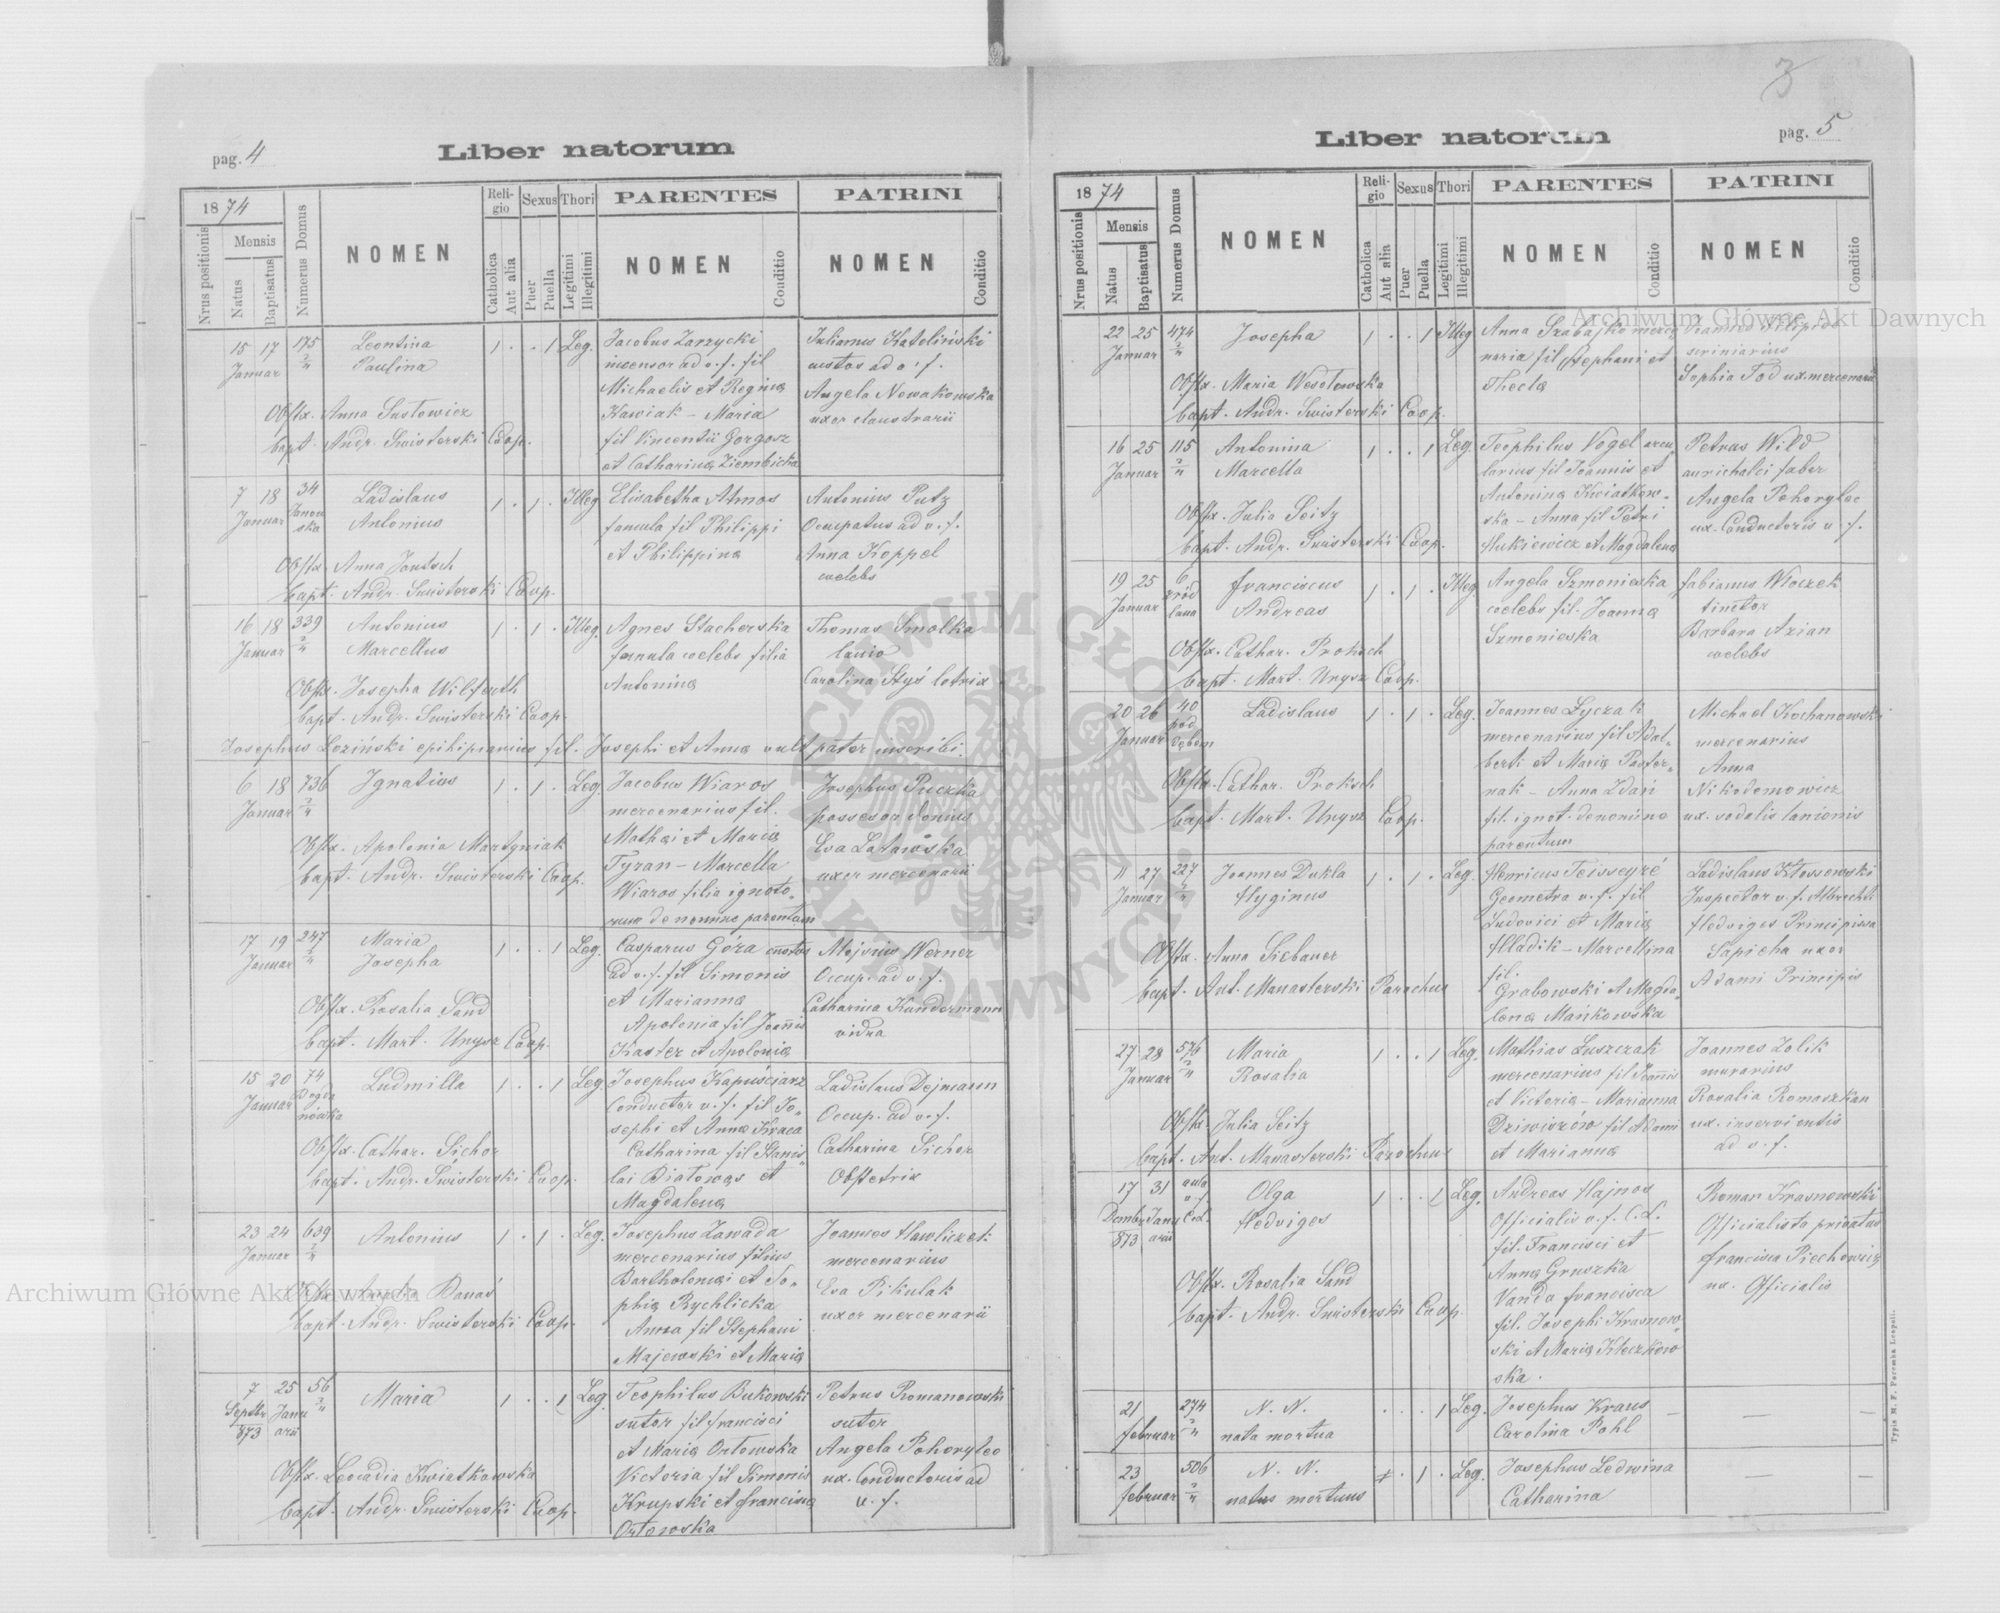 pag. 4
Liber natorum
1874
Nrus positionis
Mensis
Natus
Baptisatus
Numerus Domus
NOMEN
Religio
Catholica
Aut alia
Sexus
Puer
Puella
Thori
Legitimi
Illegitimi
PARENTES
NOMEN
Conditio
PATRINI
NOMEN
Conditio
15 17 175 Leontina 1 . . 1 Leg. Jacobus Zarzycki Julianus
Januar Paulina incensor ad v. f. fil custos ad v. f.
Michaelis et Regina Angela Nowakowska
Obstx. Anna Sustowicz Kawiak - Maria uxor claustrarii
bapt. Andr. Swisterski Coop. fil Vincentii Gorgosz
et Catharina Ziembicka
7 18 34 Ladislaus 1 . 1 . Illeg Elisabetha Atmos Antonius Putz
Januar Janowska Antonius famula fil Philippi Occupatus ad v. f.
et Philippina Anna Koppel
Obstx. Anna Jontsch coelebs
bapt. Andr. Swisterski Coop.
16 18 339 Antonius 1 . 1 . Illeg. Agnes Stacherska Thomas Smolka
Januar Marcellus famula coelebs filia lanio
Antonina Carolina Styś lotrix
Obstx. Josepha Wilfurth
bapt. Andr. Swisterski Coop.
Josephus Loziński fil. Josephi et Anna vult pater inscribi.
6 18 736 Ignatius 1 . 1 . Leg. Jacobus Wiaros Josephus Puczka
Januar mercenarius fil. possessor domus
Mathæi et Maria Eva
Obstx. Apolonia Martyniak Tyran - Marcella uxor mercenarii
bapt. Andr. Swisterski Coop. Wiaros filia ignoto-
rum de nomine parentum
17 19 247 Maria 1 . . 1 Leg. Casparus Góra custos Aloysius Werner
Januar Josepha ad v. f. fil Simonis Occup. ad v. f.
et Marianna Catharina Kundermann
Obstx. Rosalia Sand Apolonia fil Joannis vidua
bapt. Mart. Unysz Coop. Kaster et Apolonia
15 20 74 Ludmilla 1 . . 1 Leg. Josephus Kapuściarz Ladislaus Dejmann
Januar Bogdanówka Conductor v. f. fil Jo- Occup. ad v. f.
sephi et Anna Kraca Catharina Sichor
Obstx. Cathar. Sichor Catharina fil Stanis- Obstetrix
bapt. Andr. Swisterski Coop. lai Białowąs et
Magdalena
23 24 639 Antonius 1 . 1 . Leg. Josephus Zawada Joannes Hawliczek
Januar mercenarius filius mercenarius
Bartholomæi et So- Eva Pikulak
Obstx. Amelia Banaś phia Rychlicka uxor mercenarii
bapt. Andr. Swisterski Coop. Anna fil Stephani
Majewski et Maria
7 25 56 Maria 1 . . 1 Leg. Teophilus Bukowski Petrus Romanowski
Septbr Januarii sutor fil Francisci sutor
873 et Maria Orłowska Angela Pohorylec
Obstx. Leocadia Kwiatkowska Victoria fil Simonis ux. Conductoris ad
bapt. Andr. Swisterski Coop. Krupski et Francisca v. f.
Orłowska
3
pag. 5
Liber natorum
1874
Nrus positionis
Mensis
Natus
Baptisatus
Numerus Domus
NOMEN
Religio
Catholica
Aut alia
Sexus
Puer
Puella
Thori
Legitimi
Illegitimi
PARENTES
NOMEN
Conditio
PATRINI
NOMEN
Conditio
22 25 474 Josepha 1 . . 1 Illeg Anna Szabajko merce-
Januar naria fil Stephani et scriniarius
Obstx. Maria Wesołowska Thecla Sophia Tod ux. mercenarii
bapt. Andr. Swisterski Coop.
16 25 115 Antonina 1 . . 1 Leg. Teophilus Vogel arcu- Petrus Wild
Januar Marcella larius fil Joannis et aurichalci faber
Antonina Kwiatkow- Angela Pohorylec
Obstx. Julia Seitz ska - Anna fil Petri ux. Conductoris v. f.
bapt. Andr. Swisterski Coop. Hukiewicz et Magdalena
19 25 6 Franciscus 1 . 1 . Illeg. Angela Szmonieska Fabianus Woczek
Januar źródlana Andreas coelebs fil. Joanna tinctor
Szmonieska Barbara Azian
Obstx. Cathar. Proksch coelebs
bapt. Mart. Unysz Coop.
20 26 40 Ladislaus 1 . 1 . Leg. Joannes Łyczak Michael Kochanowski
Januar pod dębem mercenarius fil Adal- mercenarius
berti et Maria Paster- Anna
Obstx. Cathar. Proksch nak - Anna Zdań Nikodemowicz
bapt. Mart. Unysz Coop. fil. ignot. denomine ux. sodalis lanionis
parentum
11 27 227 Joannes Dukla 1 . 1 . Leg. Henricus Teisseyré Ladislaus Kłossowski
Januar Hyginus Geometra v. f. fil Inspector v. f. Albrechti
Ludovici et Maria Hedviges Principissa
Obstx. Anna Siebauer Hladik - Marcellina Sapieha uxor
bapt. Ant. Manasterski Parochus fil. Grabowski et Magda- Adami Principis
lena Mańkowska
27 28 576 Maria 1 . . 1 Leg. Mathias Łuszczak Joannes Zolik
Januar Rosalia mercenarius fil Joannis murarius
et Victoria - Marianna Rosalia Romaszkan
Obstx. Julia Seitz Dziwiszów fil Adami ux. inservientis
bapt. Ant. Manasterski Parochus et Marianna ad v. f.
17 31 aula Olga 1 . . 1 Leg. Andreas Hajnos Roman Krasnowski
Dembr Januarii v. f. C.L. Hedviges Officialis v. f. C. L. Officialista privatus
873 fil. Francisci et Francisca Piechowicz
Obstx. Rosalia Sand Anna Gruszka ux. Officialis
bapt. Andr. Swisterski Coop. Vanda Francisca
fil. Josephi Krasnow-
ski et Maria Kleczkow-
ska.
21 274 N. N. . . . 1 Leg. Josephus Kraus — — —
Februar nata mortua Carolina Pohl
23 506 N. N. . 1 . Leg. Josephus Ledwina — —
Februar natus mortuus Catharina
Typis M. F. Poremba Leopoli.
Archiwum Główne Akt Dawnych
Archiwum Główne Akt Dawnych
ARCHIWUM GŁÓWNE AKT DAWNYCH